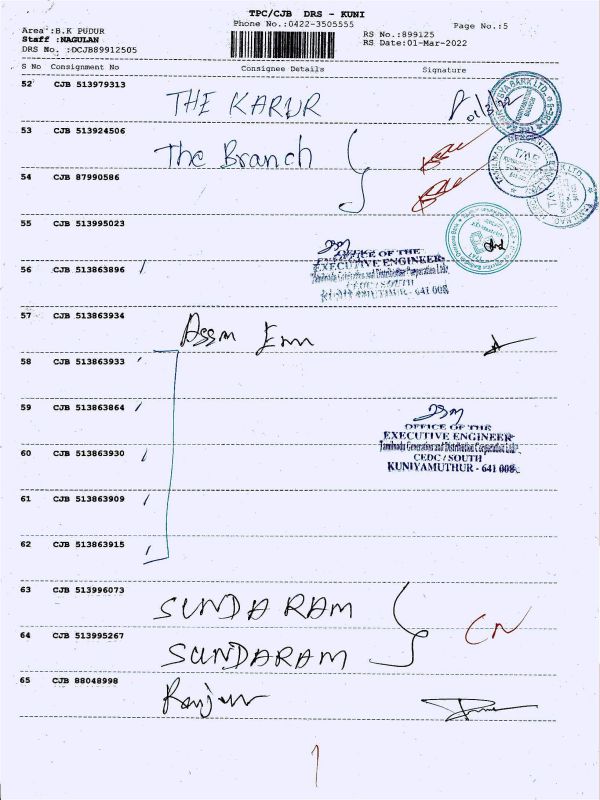 TPC/CJB DRS - KUNI
Phone No.:0422-3505555
Page No.:5
Area :B.K PUDUR
RS No.:899125
Staff :NAGULAN
RS Date:01-Mar-2022
DRS No. :DCJB89912505
S No Consignment No Consignee Details Signature
52 CJB 513979313 THE KARUR
53 CJB 513924506 The Branch
54 CJB 87990586
55 CJB 513995023
OFFICE OF THE
EXECUTIVE ENGINEER
Tamilnadu Generation and Distribution Corporation Ltd.
CEDC / SOUTH
KUNIYAMUTHUR - 641 008.
56 CJB 513863896
57 CJB 513863934
58 CJB 513863933
59 CJB 513863864
OFFICE OF THE
EXECUTIVE ENGINEER
Tamilnadu Generation and Distribution Corporation Ltd.
CEDC / SOUTH
KUNIYAMUTHUR - 641 008.
60 CJB 513863930
61 CJB 513863909
62 CJB 513863915
63 CJB 513996073 SUNDARAM
64 CJB 513995267 SUNDARAM
CN
65 CJB 88048998